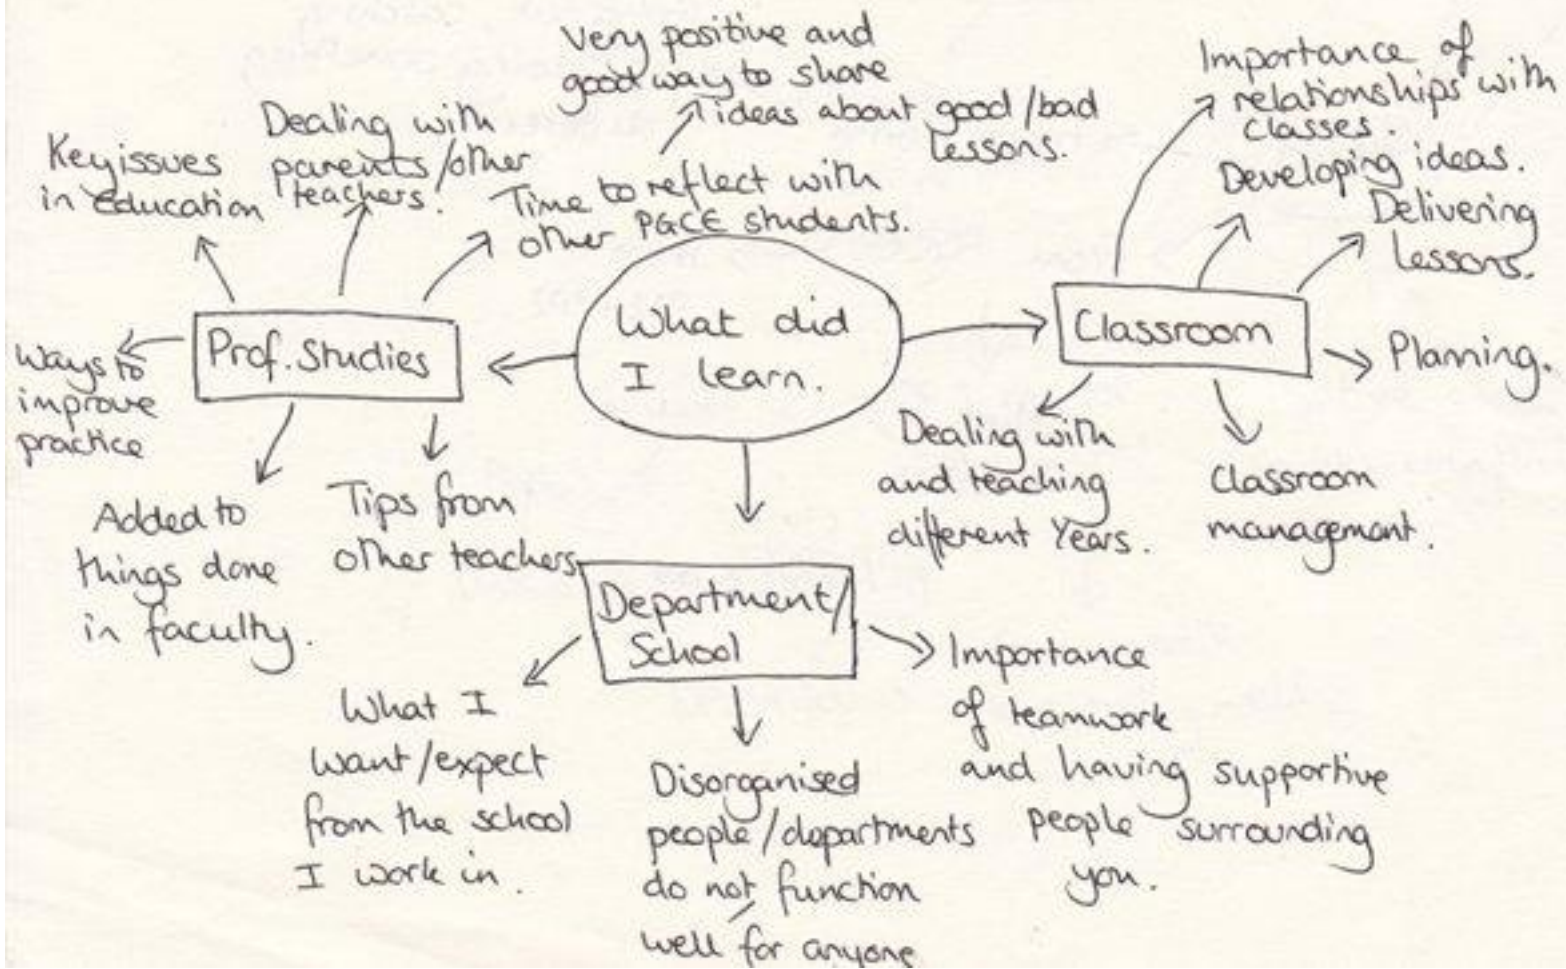 What did
I learn.
Prof. Studies
Key issues
in education
Dealing with
parents/other
teachers.
Time to reflect with
other PGCE students.
Very positive and
good way to share
ideas about good/bad
lessons.
Ways to
improve
practice
Added to
things done
in faculty.
Tips from
other teachers
Classroom
Importance of
relationships with
classes.
Developing ideas.
Delivering
lessons.
Planning.
Classroom
management.
Dealing with
and teaching
different Years.
Department/
School
What I
want/expect
from the school
I work in.
Disorganised
people/departments
do not function
well for anyone
Importance
of teamwork
and having supportive
people surrounding
you.